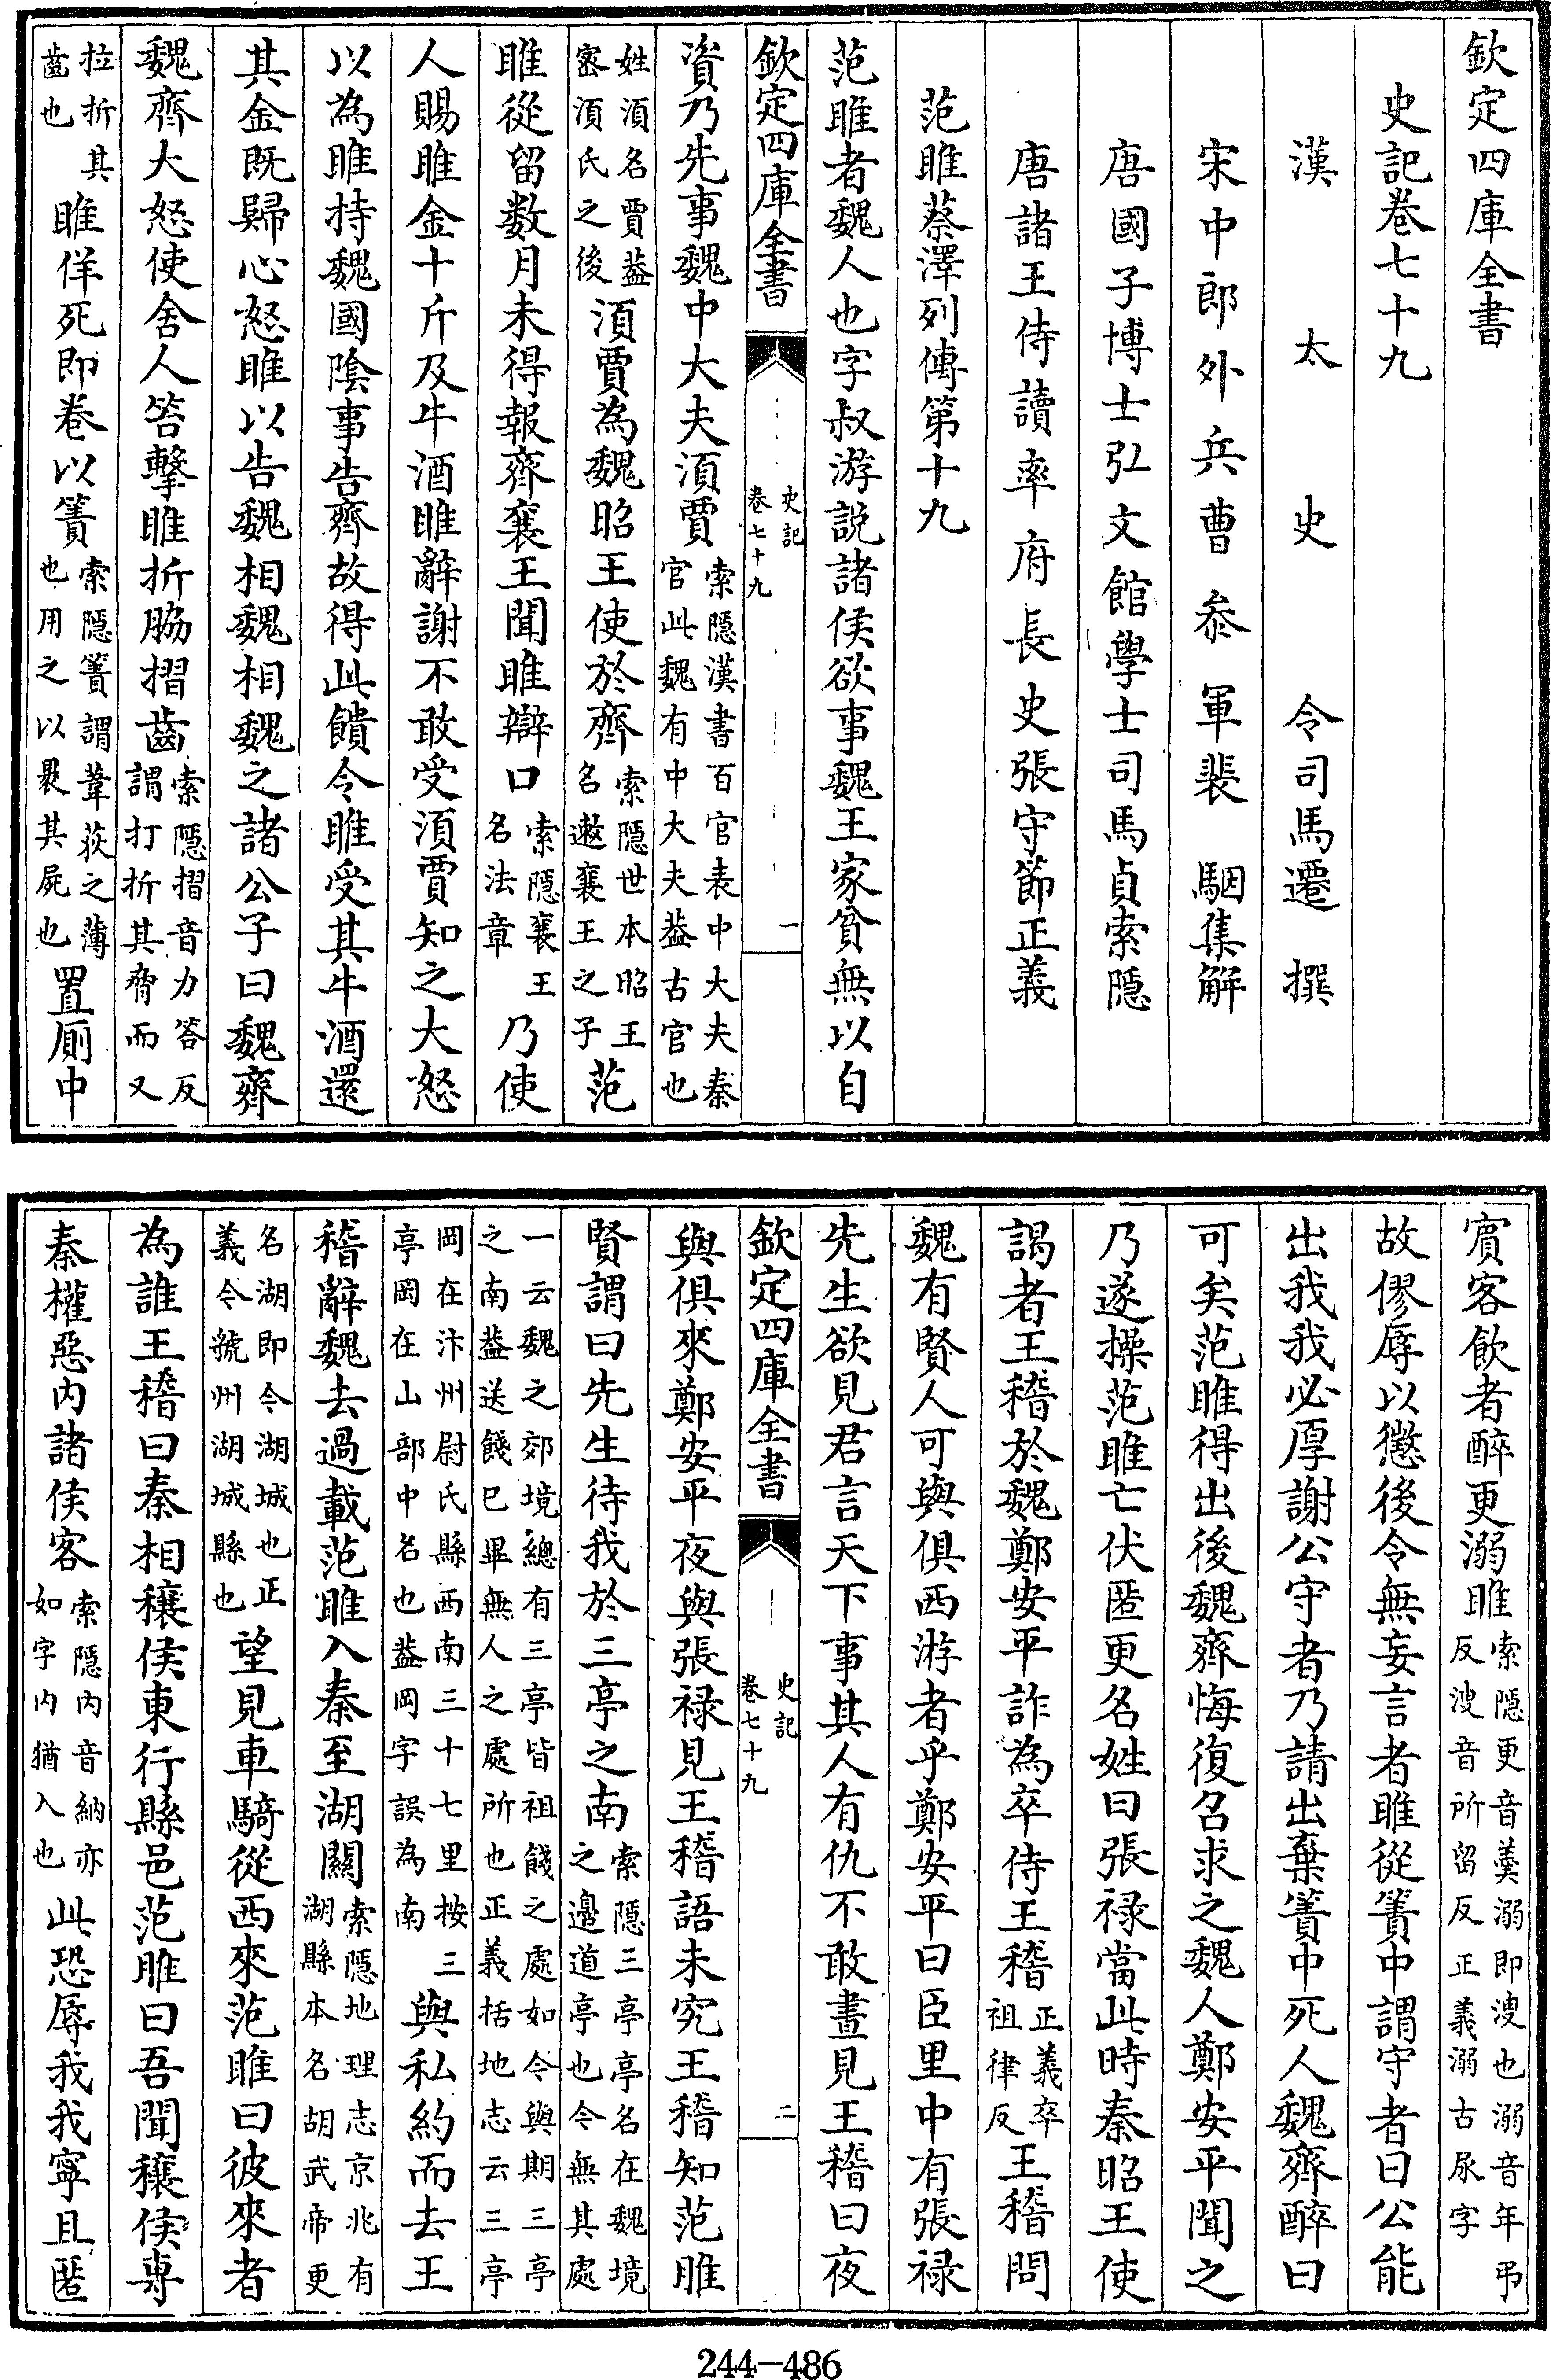 欽定四庫全書
史記卷七十九
漢太史令司馬遷撰
宋中郎外兵曹叅軍裴駰集解
唐國子博士弘文館學士司馬貞索隱
唐諸王侍讀率府長史張守節正義
范雎蔡澤列傳第十九
范雎者魏人也字叔游説諸侯欲事魏王家貧無以自
欽定四庫全書 史記卷七十九 一
資乃先事魏中大夫湏賈索隱漢書百官表中大夫秦官此魏有中大夫葢古官也
姓湏名賈葢宻湏氏之後湏賈為魏昭王使於齊索隱世本昭王名遬襄王之子范
雎從留数月未得報齊襄王聞雎辯口索隱襄王名法章乃使
人賜雎金十斤及牛酒雎辭謝不敢受湏賈知之大怒
以為雎持魏國陰事告齊故得此饋令雎受其牛酒還
其金既歸心怒雎以告魏相魏相魏之諸公子曰魏齊
魏齊大怒使舍人笞擊雎折脇摺齒索隱摺音力答反謂打折其脅而又
拉折其齒也雎佯死即卷以簀索隱簀謂葦荻之薄也用之以褁其屍也置厠中
賓客飲者醉更溺雎索隱更音羮溺即溲也溺音年弔反溲音所留反正義溺古尿字
故僇辱以懲後令無妄言者雎從簀中謂守者曰公能
出我我必厚謝公守者乃請出棄簀中死人魏齊醉曰
可矣范雎得出後魏齊悔復召求之魏人鄭安平聞之
乃遂操范雎亡伏匿更名姓曰張禄當此時秦昭王使
謁者王稽於魏鄭安平詐為卒侍王稽正義卒祖律反王稽問
魏有賢人可與俱西游者乎鄭安平曰臣里中有張禄
先生欲見君言天下事其人有仇不敢晝見王稽曰夜
欽定四庫全書 史記卷七十九 二
與俱來鄭安平夜與張禄見王稽語未究王稽知范雎
賢謂曰先生待我於三亭之南索隱三亭亭名在魏境之邉道亭也今無其處
一云魏之郊境總有三亭皆祖餞之處如今與期三亭之南葢送餞巳畢無人之處所也正義括地志云三亭
岡在汴州尉氏縣西南三十七里按三亭岡在山部中名也葢岡字誤為南與私約而去王
稽辭魏去過載范雎入秦至湖關索隱地理志京兆有湖縣本名胡武帝更
名湖即今湖城也正義今虢州湖城縣也望見車騎從西來范雎曰彼來者
為誰王稽曰秦相穰侯東行縣邑范雎曰吾聞穰侯專
秦權惡内諸侯客索隱内音納亦如字内猶入也此恐辱我我寧且匿
244-486